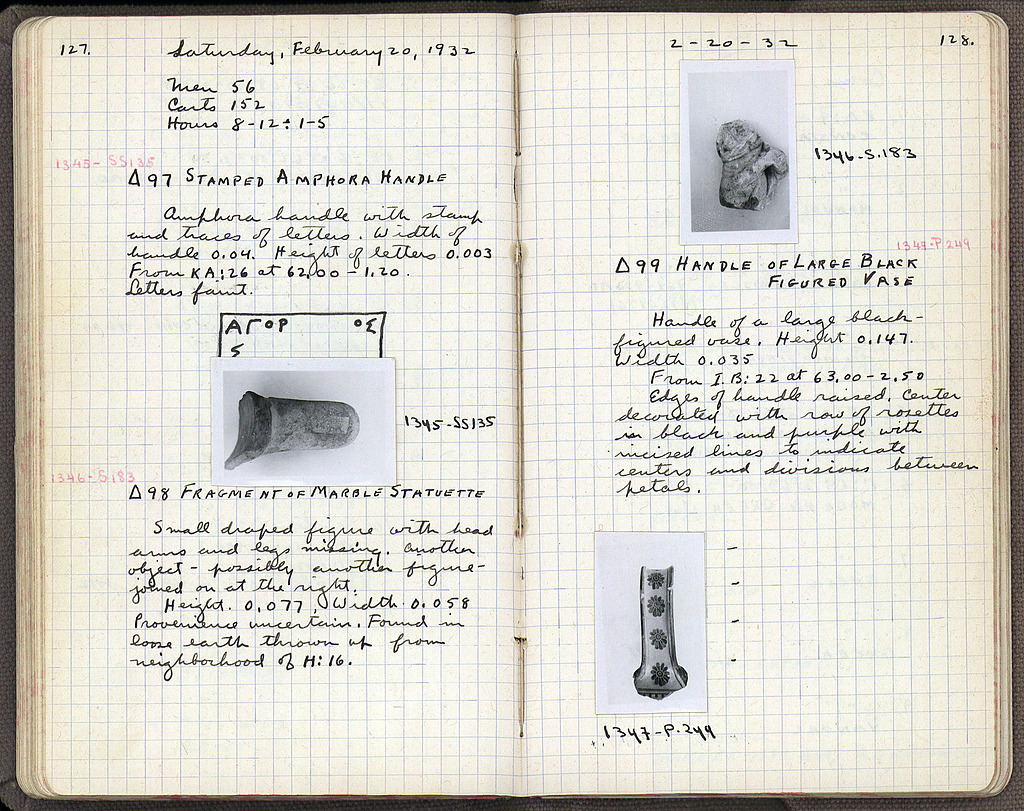 127.
Saturday, February 20, 1932
Men 56
Carts 152
Hours 8-12 : 1-5
1345- SS135
Δ97 STAMPED AMPHORA HANDLE
Amphora handle with stamp
and traces of letters. Width of
handle 0.04. Height of letters 0.003
From KA:26 at 62.00 - 1.20.
Letters faint.
ΑΓΟΡ ΟΣ
1345-SS135
1346-S.183
Δ98 FRAGMENT OF MARBLE STATUETTE
Small draped figure with head
arms and legs missing. Another
object - possibly another figure-
joined on at the right.
Height. 0.077, Width. 0.058
Provenience uncertain. Found in
loose earth thrown up from
neighborhood of H:16.
2-20-32
128.
1346-S.183
1347-P.249
Δ99 HANDLE OF LARGE BLACK
FIGURED VASE
Handle of a large black-
figured vase. Height 0.147.
Width 0.035
From I.B:22 at 63.00-2.50
Edges of handle raised. Center
decorated with row of rosettes
in black and purple with
incised lines to indicate
centers and divisions between
petals.
1347-P.249